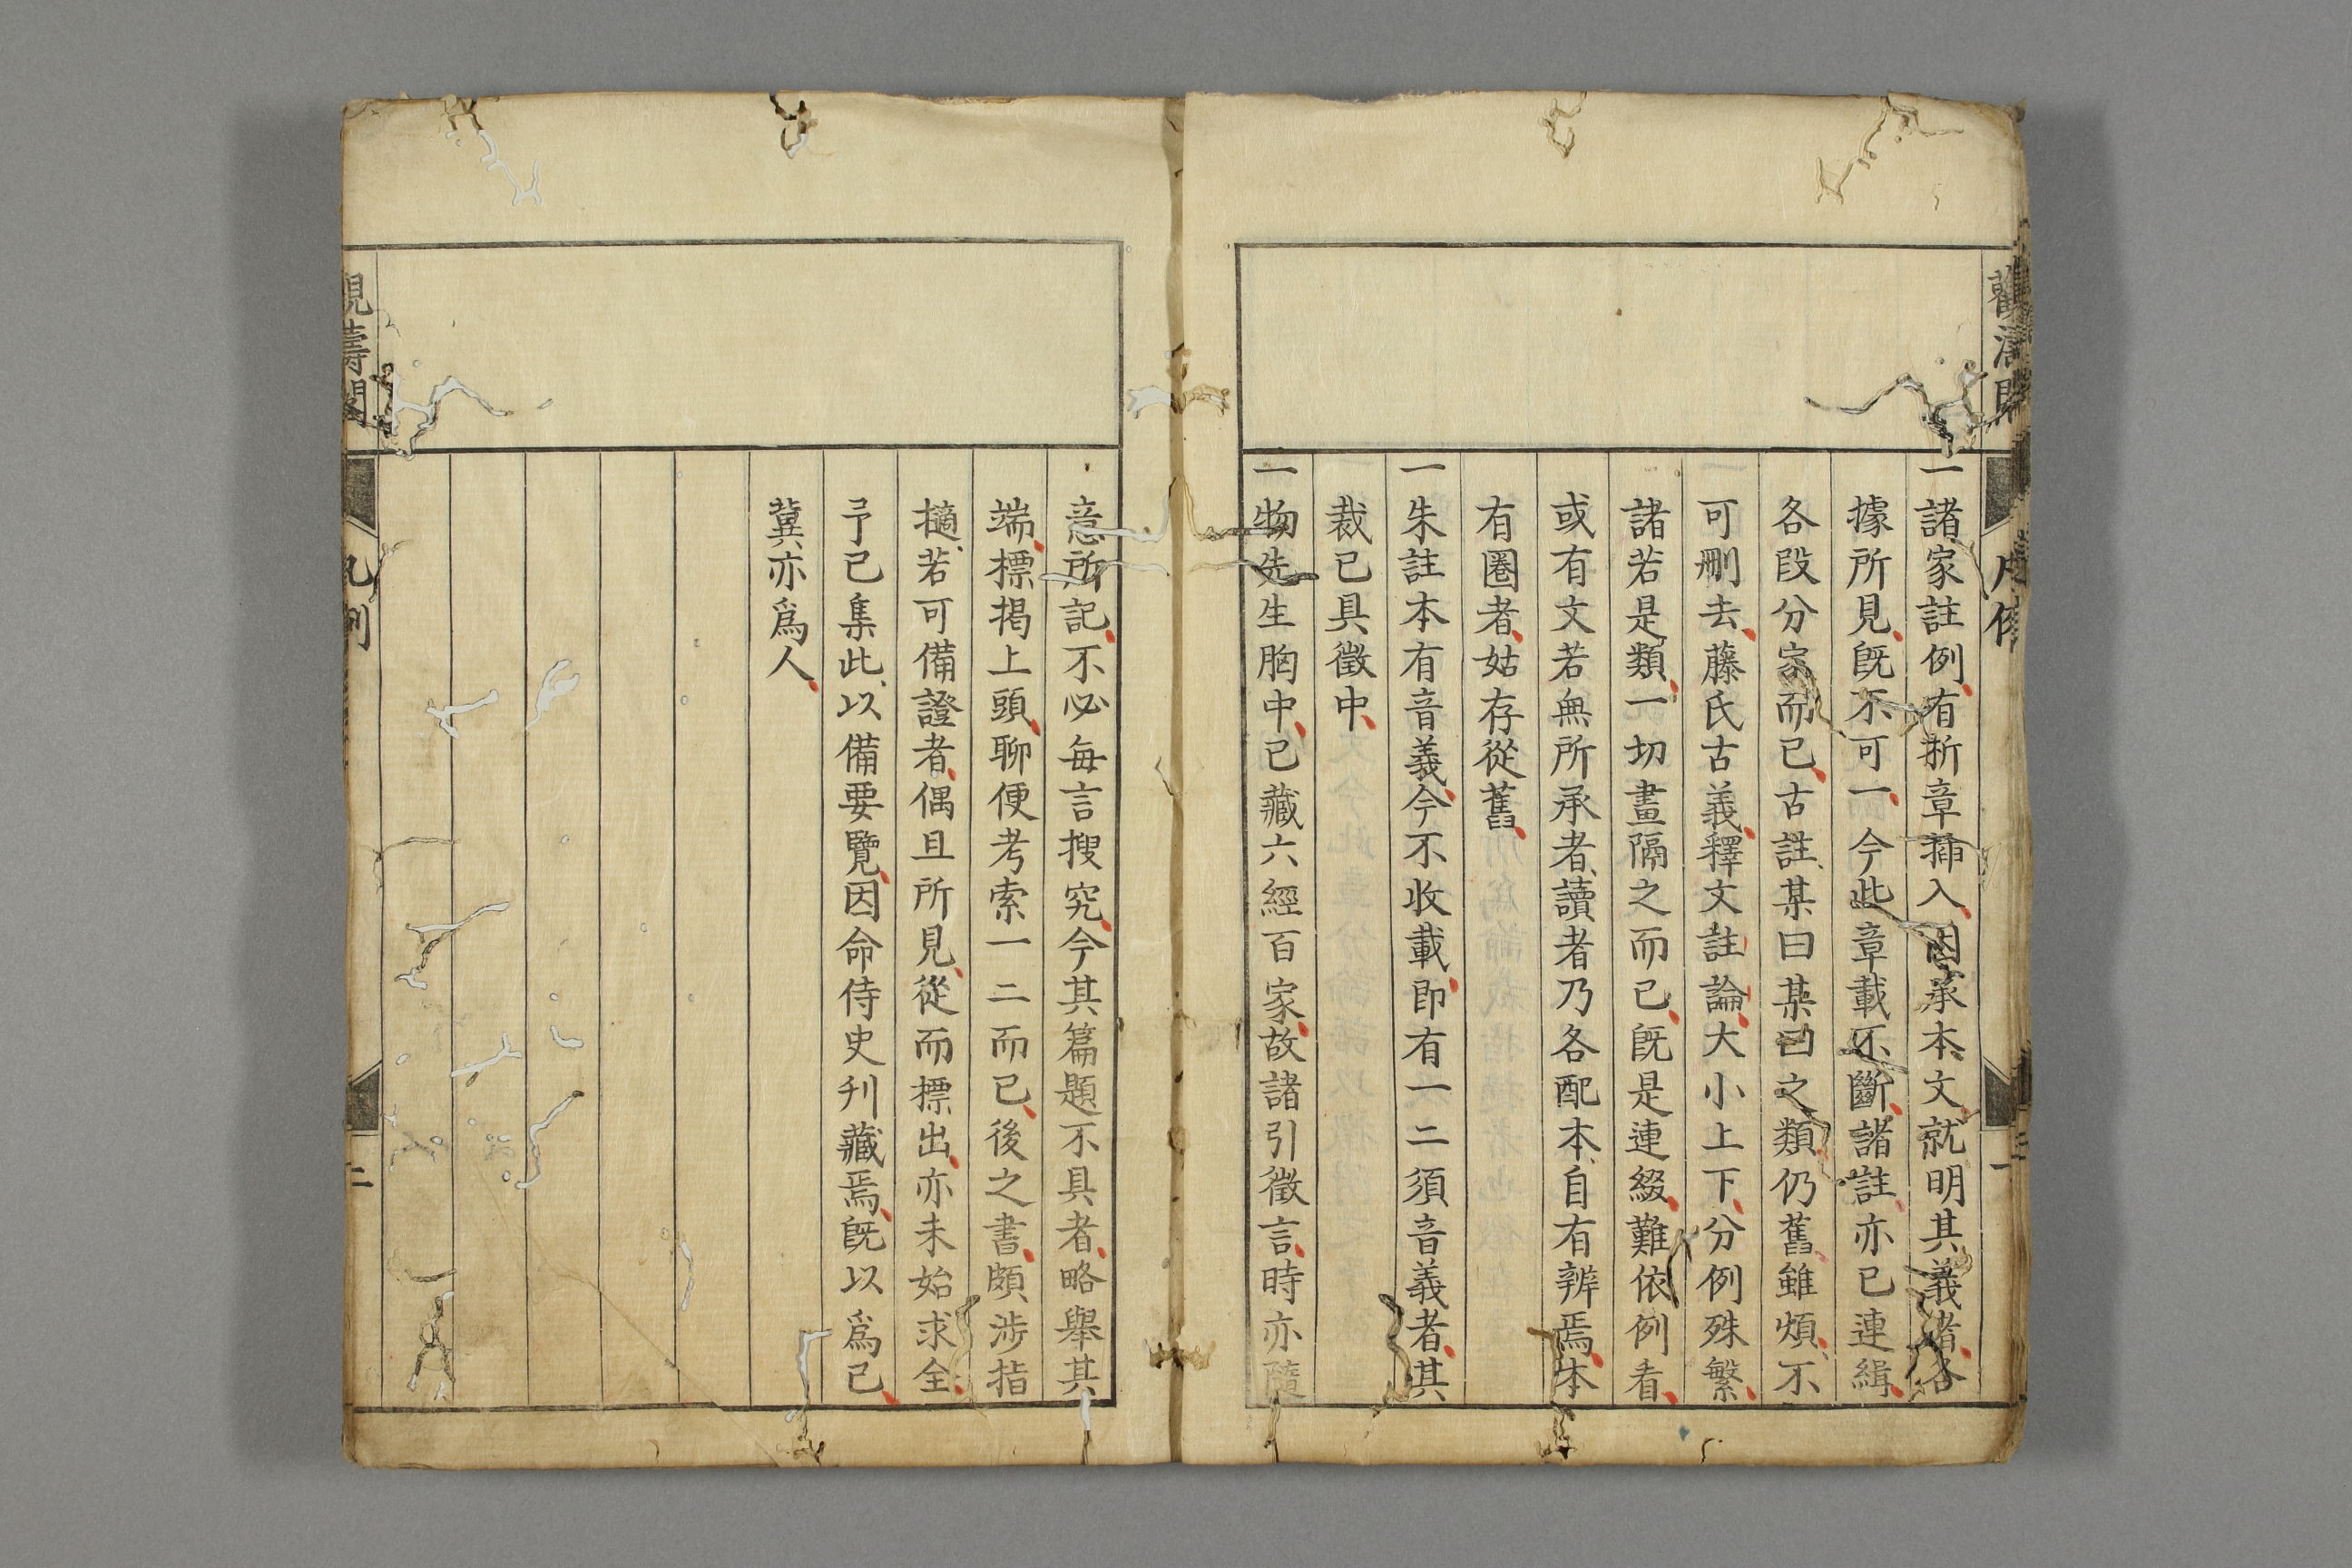 一諸家註例有析章揷入因承本文就明其義者各
據所見既不可一今此章載不斷諸註亦已連緝
各段分家而已古註某曰某曰之類仍舊雖煩不
可刪去藤氏古義釋文註論大小上下分例殊繁
諸若是類一切畫隔之而已既是連綴難依例看
或有文若無所承者讀者乃各配本自有辨焉本
有圈者姑存從舊
一朱註本有音義今不收載即有一二須音義者其
裁已具徵中
一物先生胸中已藏六經百家故諸引徵言時亦隨
意所記不必每言搜究今其篇題不具者略舉其
端標揭上頭聊便考索一二而已後之書頗涉指
擿若可備證者偶且所見從而標出亦未始求全
予已集此以備要覽因命侍史刋藏焉既以爲已
冀亦爲人
觀濤閣
凡例
二